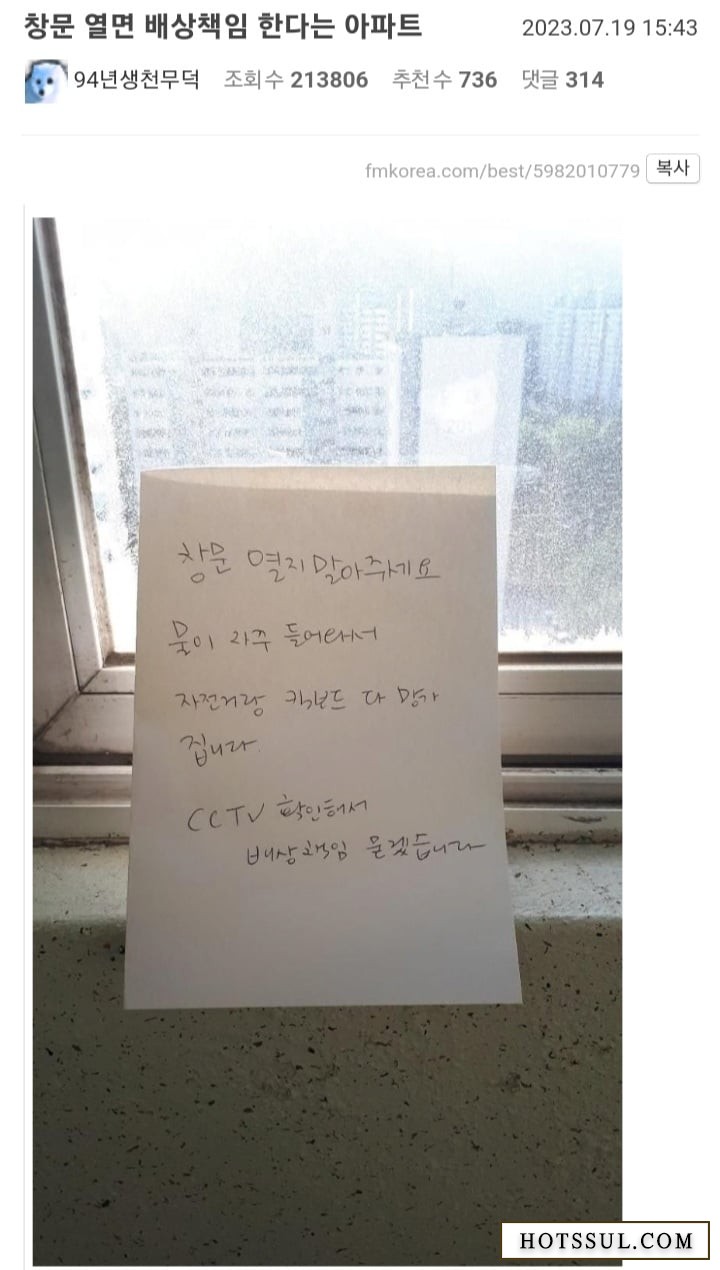 창문 열면 배상책임 한다는 아파트
2023.07.19 15:43
94년생천무덕 조회수 213806 추천수 736 댓글 314
fmkorea.com/best/5982010779 복사
창문 열지말아주세요
물이 자주 들어와서
자전거랑 킥보드 다 망가
집니다.
CCTV 확인해서
배상책임 묻겠습니다
HOTSSUL.COM